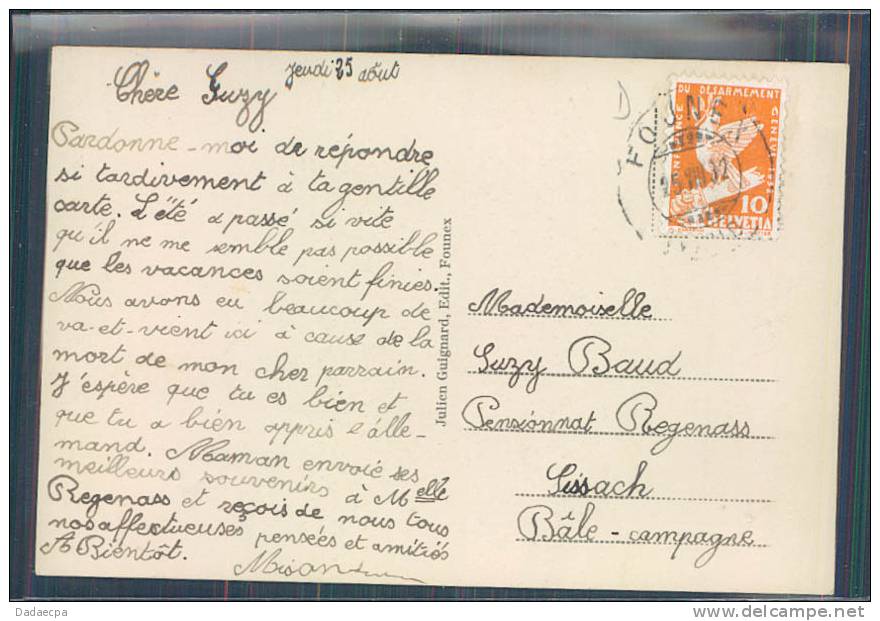 Jeudi 25 août
Chère Suzy
Pardonne-moi de répondre
si tardivement à ta gentille
carte. L'été a passé si vite
qu'il ne me semble pas possible
que les vacances soient finies.
Nous avons eu beaucoup de
va-et-vient ici à cause de la
mort de mon cher parrain.
J'espère que tu es bien et
que tu a bien appris l'alle-
mand. Maman envoie ses
meilleurs souvenirs à Melle
Regenass et reçois de nous tous
nos affectueuses pensées et amitiés
A Bientôt.
Julien Guignard, Edit., Founex
CONFERENCE DU DÉSARMEMENT GENÈVE 1932
10
HELVETIA
FOUNEX
25.VIII.32
Mademoiselle
Suzy Baud
Pensionnat Regenass
Sissach
Bâle - campagne
Dadaecpa
delcampe.net